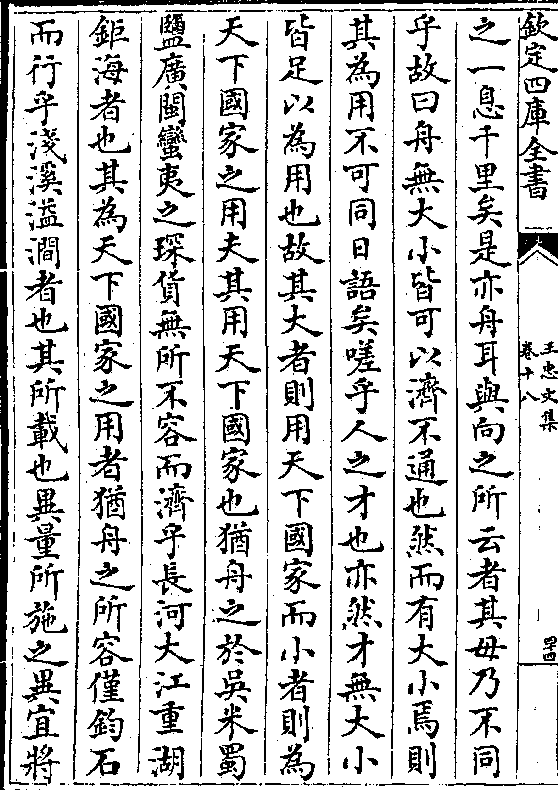 欽定四庫全書
王忠文集
卷十八
四
之一息千里矣是亦舟耳與向之所云者其毋乃不同
乎故曰舟無大小皆可以濟不通也然而有大小焉則
其為用不可同日語矣嗟乎人之才也亦然才無大小
皆足以為用也故其大者則用天下國家而小者則為
天下國家之用夫其用天下國家也猶舟之於吳米蜀
鹽廣閩蠻夷之琛貨無所不容而濟乎長河大江重湖
鉅海者也其為天下國家之用者猶舟之所容僅鈞石
而行乎淺溪溢澗者也其所載也異量所施之異宜將